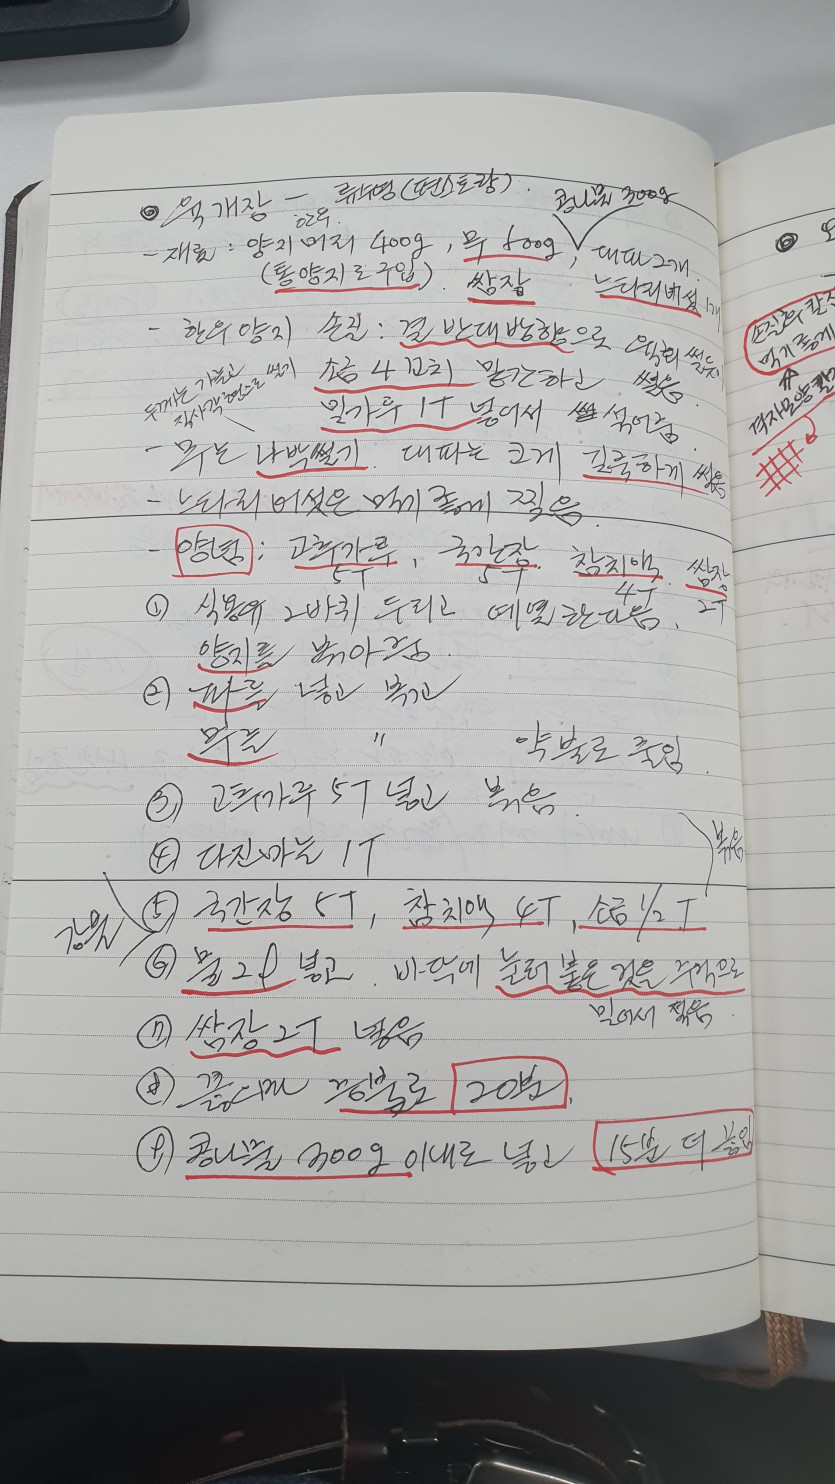 ◎ 육개장 - 류수영(편스토랑).
콩나물 300g
한우
- 재료 : 양지머리 400g, 무 600g, 대파 2개.
(통양지로 구입). 쌈장 느타리버섯 1개
- 한우양지 손질 : 결 반대방향으로 육회 썰듯이
소금 4 꼬치 밑간하고 썰음.
두께는 가늘고
직사각 면으로 썰기
밀가루 1T 넣어서 섞어줌.
- 무는 나박썰기. 대파는 크게 길쭉하게 썰음
- 느타리버섯은 먹기 좋게 찢음.
- 양념 : 고춧가루, 국간장. 참치액. 쌈장
5T 5T 4T 2T
① 식용유 2바퀴 두르고 예열한 다음,
양지를 볶아줌.
② 파를 넣고 볶고
무를 〃 약불로 줄임.
③ 고춧가루 5T 넣고 볶음.
④ 다진마늘 1T
볶음
⑤ 국간장 5T, 참치액 4T, 소금 1/2 T
강불
⑥ 물 2ℓ 붓고. 바닥에 눌러 붙은 것을 주걱으로
밀어서
⑦ 쌈장 2T 넣음
⑧ 끓으면 20분.
⑨ 콩나물 300g 이내로 넣고 15분 더 끓임
◎
먹기 좋게
격자모양